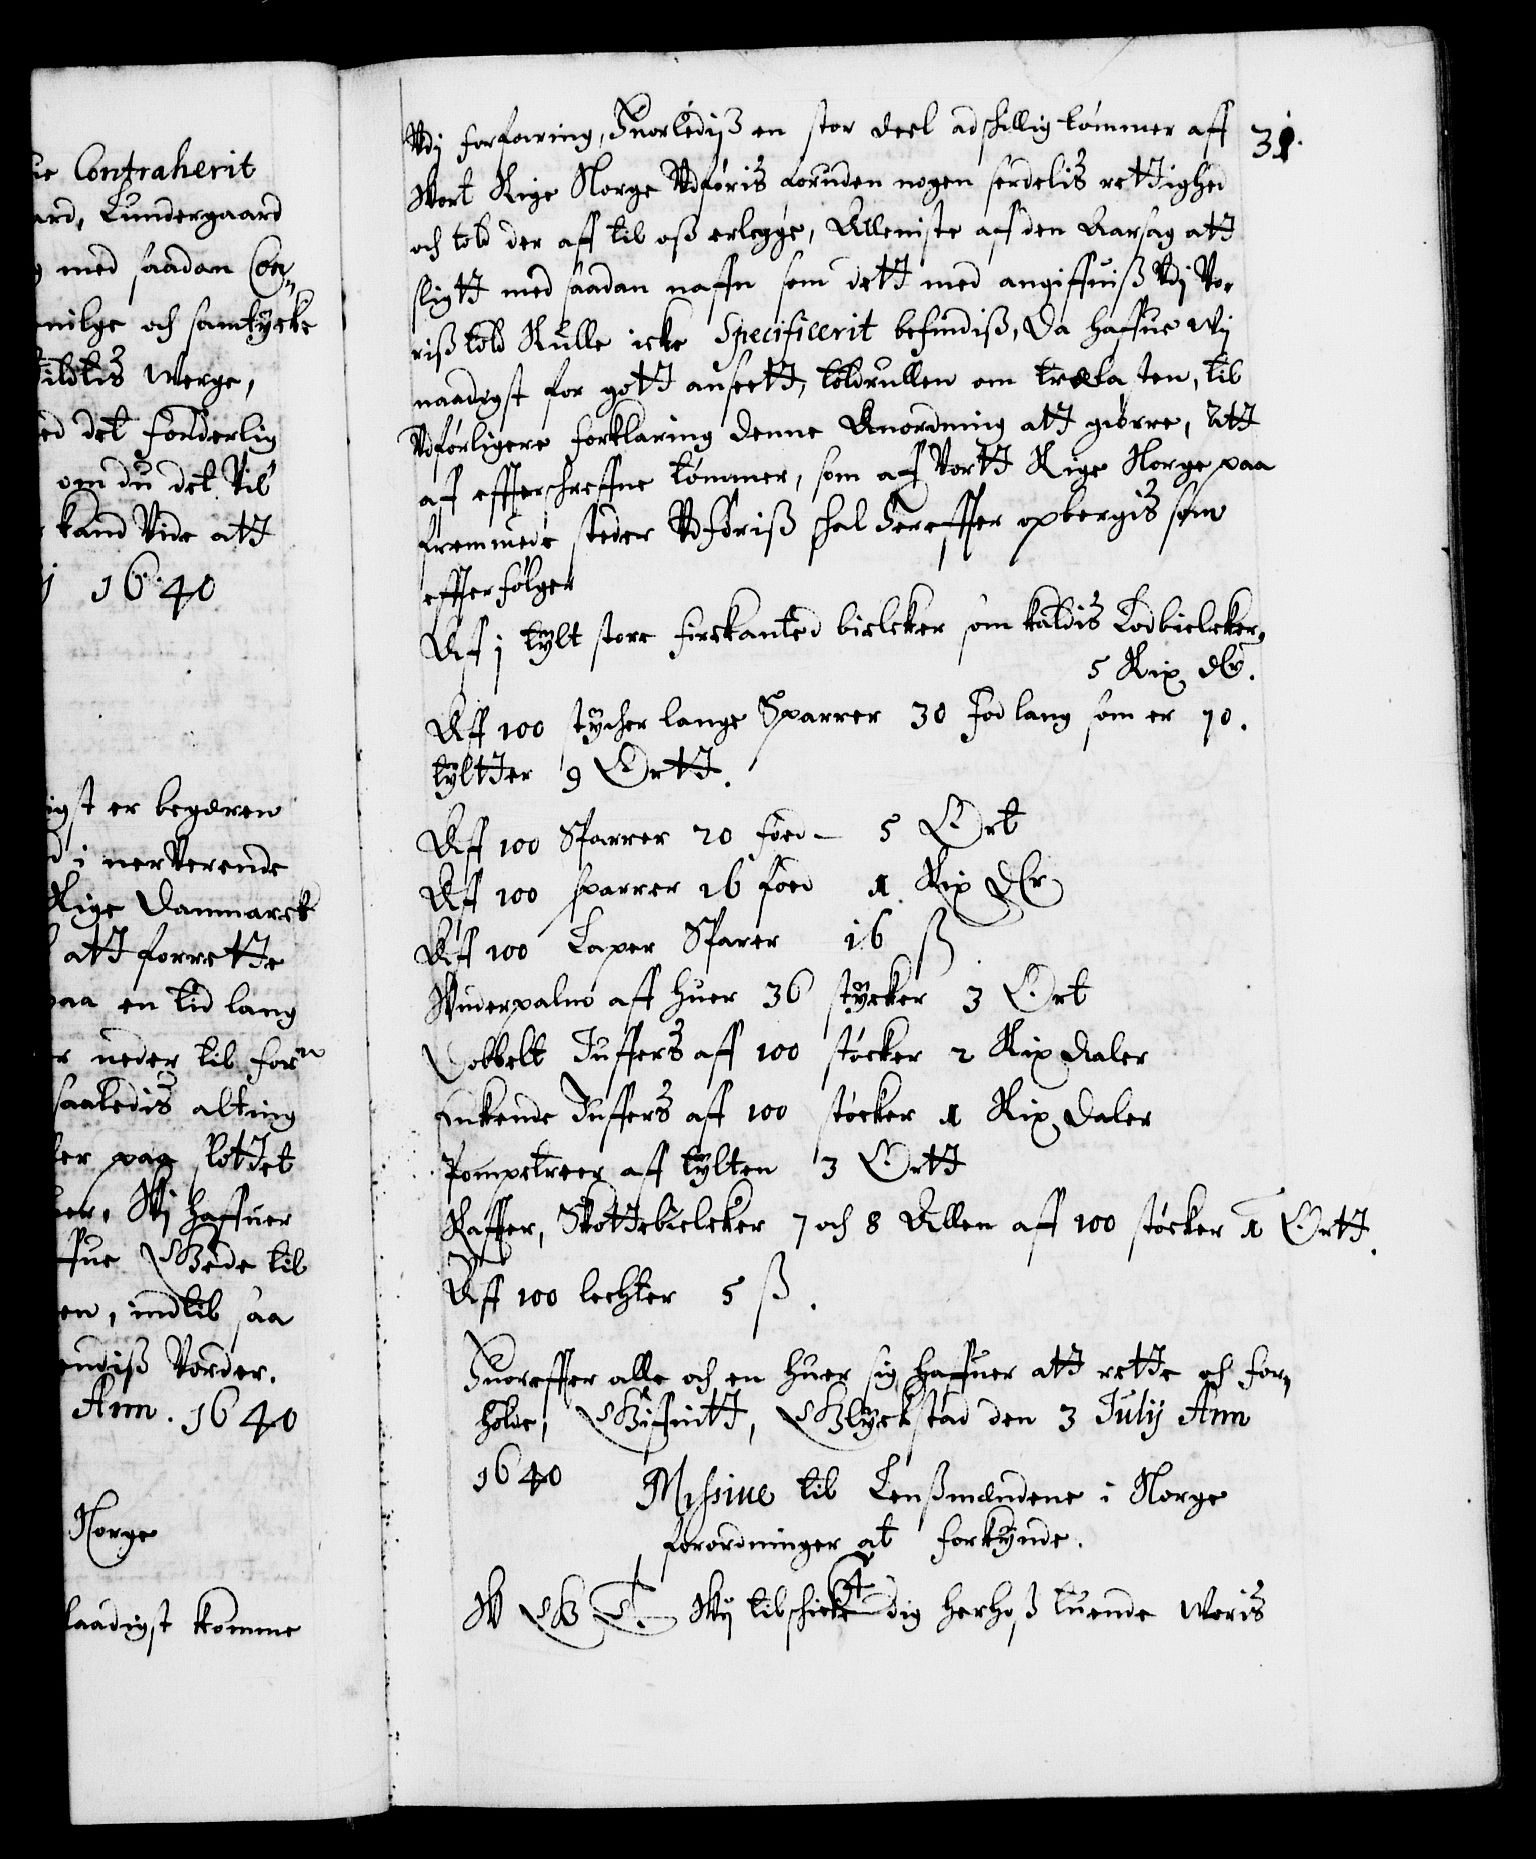 ue Contraherit
ard, Lundergaard
g med saadan Con„
nilge och samtÿcke
ildtis werge,
ed det sønderlig
om du det Vil
kand Vide att
j 1640
igst er begæren
d i nerVerende
Rige Danmarck
att forrette
paa en tid lang
er neder til forn
saaledis alting
ler paa Rottet
er, Wj haffuer
ffue Gxde til
en, indtil saa
endiß Vorder.
Ann. 1640
Norge
laadigst komme
31.
Vdj forfaring, Huorlediß en stor deel adskillig tømmer aff
Wort Rige Norge Vdføris foruden nogen serdelis rettighed
och told der aff til oß erlegge, Alleniste aff den Aarsag att
sligtt med saadan naffn som dett med angiffuiß Vdj Vo„
riß told Rulle icke Specificerit befindiß, Da haffue Wij
naadigst for gott anseett, toldrullen om trælasten, til
Vdførligere forklaring denne Anordning att giørre, Att
aff effterschreffne tømmer, som aff Vortt Rige Norge paa
fremmede steder Vdføriß skal Hereffter opbergis som
effterfølger
Aff j tÿlt store firekanted bielcker som kaldis Lodbielcker,
5 Rix dlr.
Aff 100 stÿcher lange Sparrer 30 fod lang som er 10.
tÿltter 9 Ortt.
Aff 100 Sparrer 20 foed – 5 Ort
Aff 100 sparrer 16 foed 1 Rix Dlr
Aff 100 Laxer Sparer 16 ß
Winderpalne aff huer 36 stÿcker 3 Ort
Dobbelt Juffers aff 100 støcker 2 Rix daler
Enkende Juffers aff 100 støcker 1 Rix daler
Pompetreer aff tÿlten 3 Ortt
Raffter, Skottebielcker 7 och 8 Allen aff 100 støcker 1 Ortt.
Aff 100 lechter 5 ß.
Huoreffter alle och en huer sig haffuer att rette och for„
holde, Giffuitt, Glÿckstad den 3 Julij Ann
1640
Missiue til Lenßmendene i Norge
forordninger at forkÿnde.
W G T. Wij tilschicke dig herhoß tuende Woris